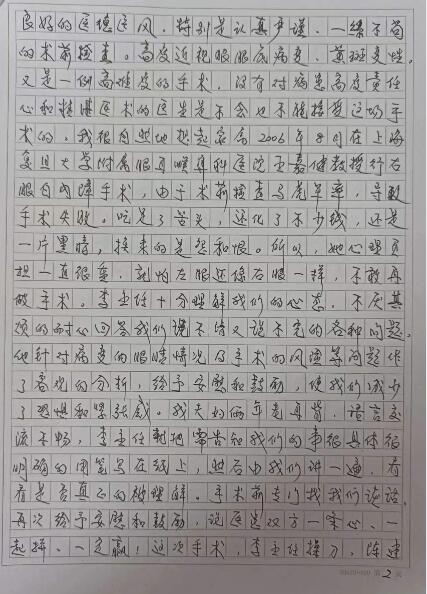 良好的医德医风，特别是认真严谨、一丝不苟
的术前检查。高度近视眼眼底病变、黄斑变性，
又是一例高难度的手术，没有对病患高度责任
心和精湛医术的医生是不会也不能接受这场手
术的。我很自然地想起家人2006年8月在上海
复旦大学附属眼耳喉鼻科医院王嘉健教授行右
眼白内障手术，由于术前检查马虎草率，导致
手术失败。吃足了苦头，还化了不少钱，还是
一片黑暗，换来的是怨和恨。所以，她心理负
担一直很重，就怕左眼还像右眼一样，不敢再
做手术。李主任十分理解我们的心态，不厌其
烦的耐心回答我们说不清又说不完的各种问题。
他针对病变的眼睛情况及手术的风险等问题作
了客观的分析，给予安慰和鼓励，使我们减少
了恐惧和紧张感。我夫妇俩年老耳背，语言交
流不畅，李主任就把需告知我们的事很具体很
明确的用笔写在纸上，然后由我们讲一遍，看
看是否真正的被理解。手术前专门找我们谈话，
再次给予安慰和鼓励，说医患双方一条心、一
起拼、一定赢，这次手术，李主任操刀，陈建
第2页